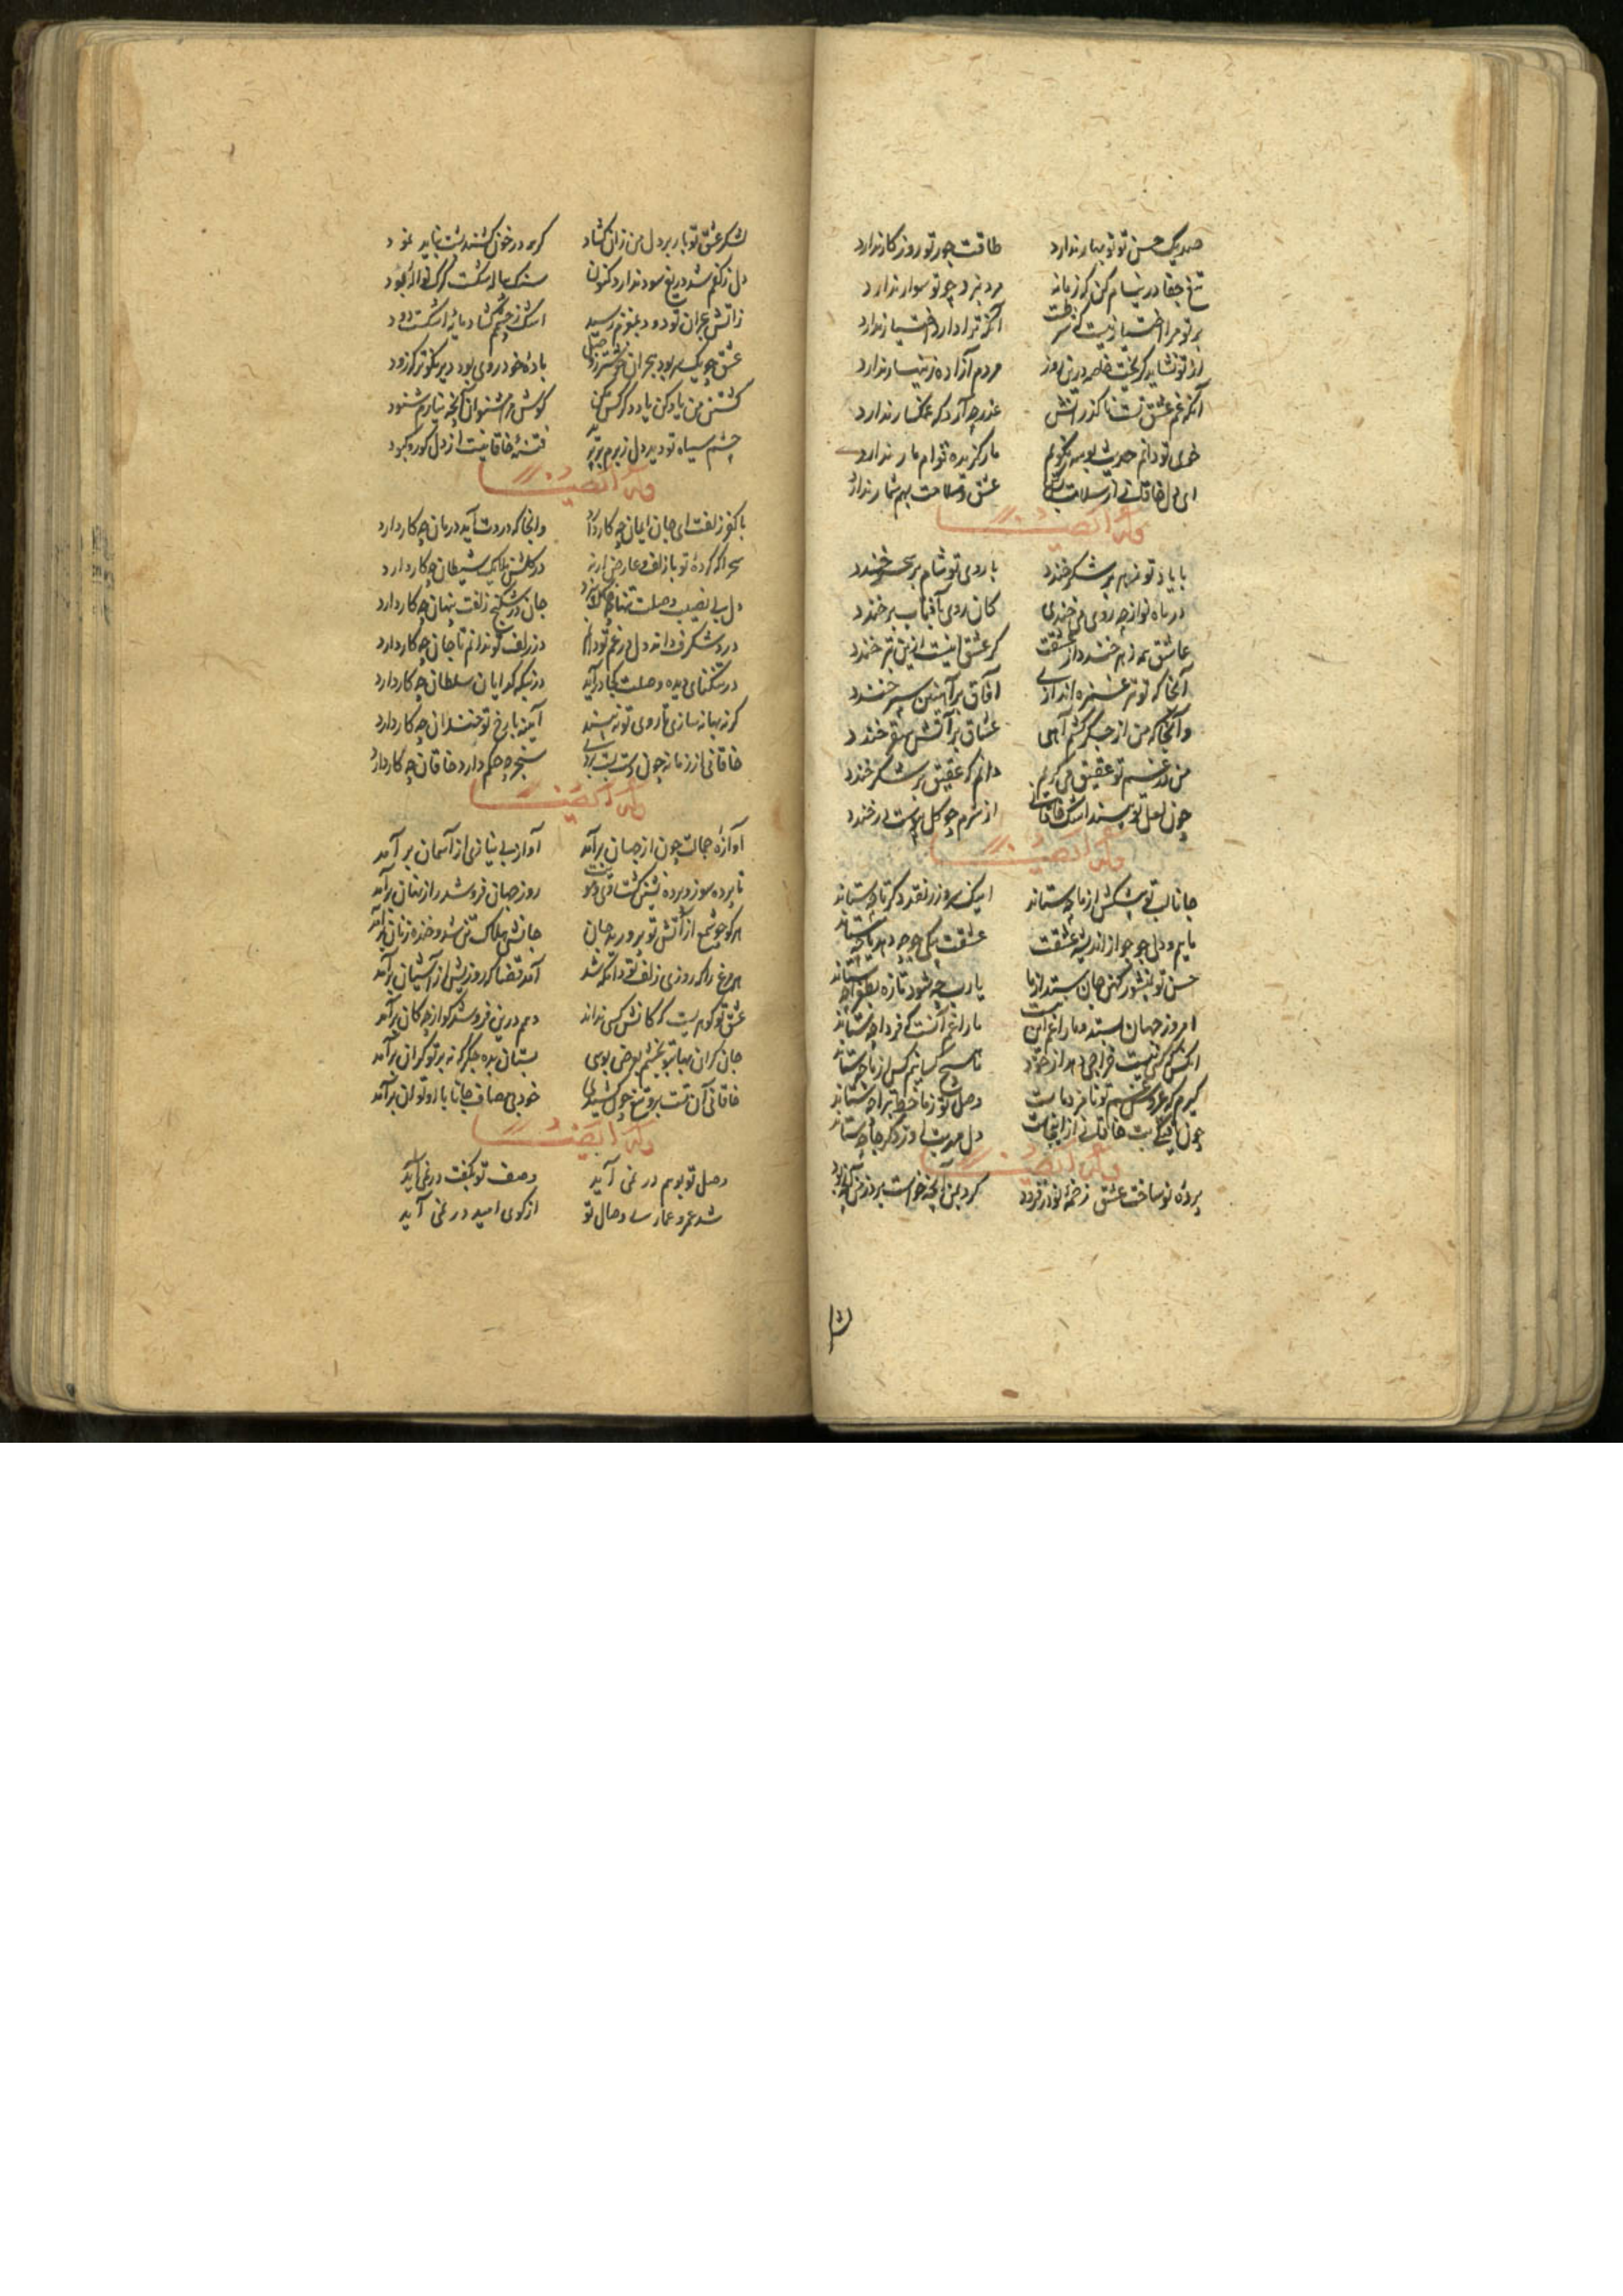 صد یک حسن تو نوبهار ندارد طاقت جور تو روزگار ندارد
تیغ جفا در نیام کن که زمانه مرد نبرد چو تو سوار ندارد
بر تو مرا اختیار نیست که شرطست آنکه ترا دارد اختیار ندارد
از تو نشاید گریخت خاصه درین روز مردم آزاده زینهار ندارد
آنکه غم عشق تست ناگذرانش عذر چه آرد که غمگسار ندارد
خوی تو دانم حدیث بوسه نگویم مار گزیده قوام مار ندارد
ای دل خاقانی از سلامت بس کن عشق و سلامت بهم شمار ندارد
وله ایضا
با یاد تو زهر بر شکر خندد با روی تو شام بر سحر خندد
در ماه نو از چه روی می خندی کان روی بآفتاب بر خندد
عاشق همه زهر خندد از عشقت گر عشق اینست ازین بتر خندد
آنجا که تو تیر غمزه اندازی آفاق بر آهنین سپر خندد
و آنجا که من از جگر کشم آهی عشاق بر آتش سقر خندد
من در غم تو عقیق می گریم دانم که عقیق بر شکر خندد
چون لعل تو بیند اشک خاقانی از شرم چو گل بپوست در خندد
وله ایضا
جانا لب تو پیشکش از ما چه ستاند اینک سر و زر نقد دگر تا چه ستاند
مائیم و دل جو جو از اندیشه عشقت عشقت بیکی جو چه دهد یا چه ستاند
حسن تو بمنشور کهن جان ستد از ما یارب چه شود تازه بطغرا چه ستاند
امروز جهان بستد و ما را غم این نیست ما را غم آنست که فردا چه ستاند
آنکس که کس نیست خراجی دهد از خود ما هیچ کسانیم کس از ما چه ستاند
گیرم که عروس غم تو نامزد ماست وصل تو ز ما خط تبرا چه ستاند
چون کیسگیت خاقانی از اینجاست دل مهریست دزد گر جا چه ستاند
وله ایضا
پرده نو ساخت عشق زخمه نو در فزود کرد بمن آنچه خواست برد ز من آنچه بود
لشکر عشق تو باز بر دل من زان گشاد گر همه در خون کشند پشت نباید نمود
دل ز کفم شد دریغ سود ندارد کنون سنگ پیاله شکست گرگ نواله ربود
ز آتش هجران تو دود بمغزم رسید اشک ز چشمم گشاد مایه اشکست دود
عشق چو یکسر بود هجران خوشتر ز وصل باده چو دردی بود دیر نکوتر که زود
کشتن من یاد کن یاد دگر کس مکن گوش مرا مشنوان آنچه نیارم شنود
چشم سیاه تو دید دل ز برم بر پرید فتنه خاقانیست از دل کور و کبود
وله ایضا
با کفر زلفت ای جان ایمان چه کار دارد وانجا که دردت آید درمان چه کار دارد
سحرا که کرده تو با زلف و عارض ار نه در گلشن ملایک شیطان چه کار دارد
دل بی نصیب وصلت تنها چگونه بیند جان در شکنج زلفت پنهان چه کار دارد
درد شگرف داند دل در غم تو دانم در زلف تو ندانم تا جان چه کار دارد
در تنگنای دیده وصلت کجا در آید در بنگه گدایان سلطان چه کار دارد
گر نه بهانه سازی تا روی تو نبیند آیینه با رخ تو چندان چه کار دارد
خاقانی از زمانه چون دست شست بر وی سنجر چه حکم دارد خاقان چه کار دارد
وله ایضا
آوازه جمالت چون از جهان برآمد آواز بی نیازی از آسمان برآمد
تا پرده سوز و پرده نشین گشت روی و مویت روز جهان فرو شد راز نهان برآمد
هر کو چو شمع از آتش تو پرورید جان جانش هلاک تن شد و خنده زنان برآمد
هر مرغ را که روزی زلف تو دانگه شد آمد قضا که روزیش از آشیان برآمد
عشق تو گوهریست که کانش کسی نداند دم درین فرو شد کو از چه کان برآمد
جان گران بها بتو بخشم بعوض بوسی بستان بده جگر که نه بر تو گران برآمد
خاقانی آن تست برو تیغ چون کشیدی خود بی مصاف جانا با او توان برآمد
وله ایضا
وصل تو بوهم در نمی آید وصف تو بگفت در نمی آید
شد عمر و عماری وصال تو از کوی امید در نمی آید